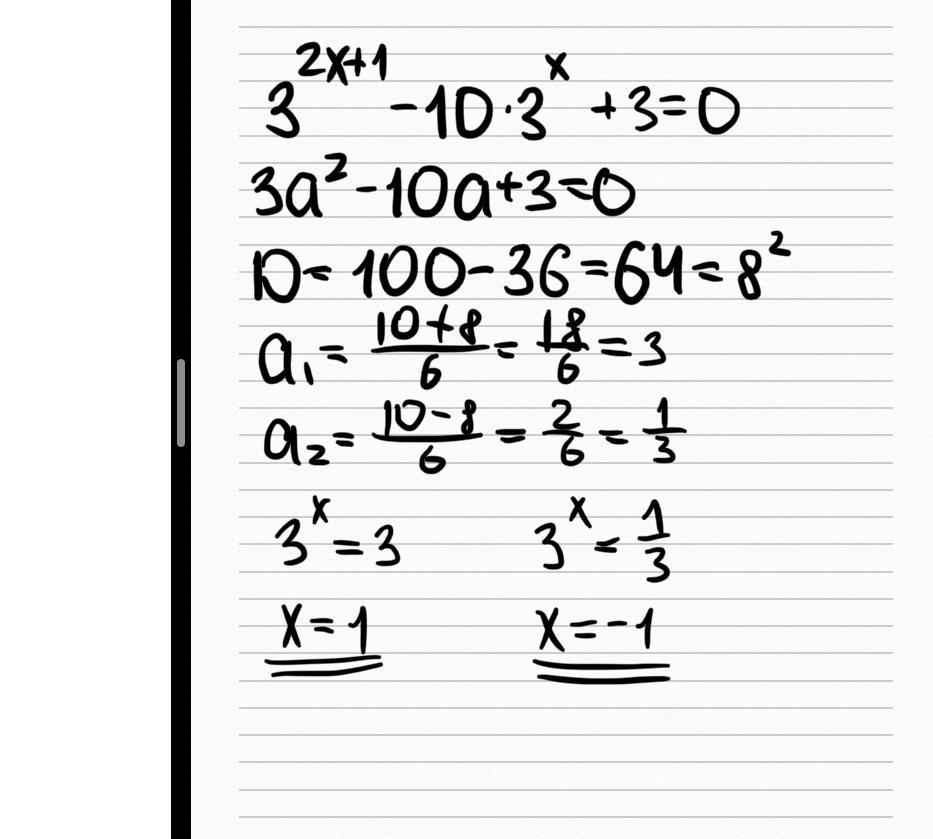 3^{2x+1} - 10 · 3^x + 3 = 0
3a² - 10a + 3 = 0
D = 100 - 36 = 64 = 8²
a₁ = \frac{10+8}{6} = \frac{18}{6} = 3
a₂ = \frac{10-8}{6} = \frac{2}{6} = \frac{1}{3}
3^x = 3    3^x = \frac{1}{3}
x = 1    x = -1